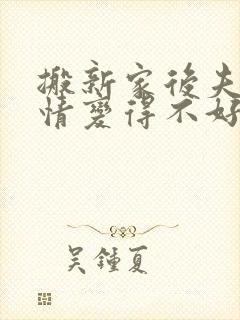 搬新家後夫
情變得不好
吴鍾夏